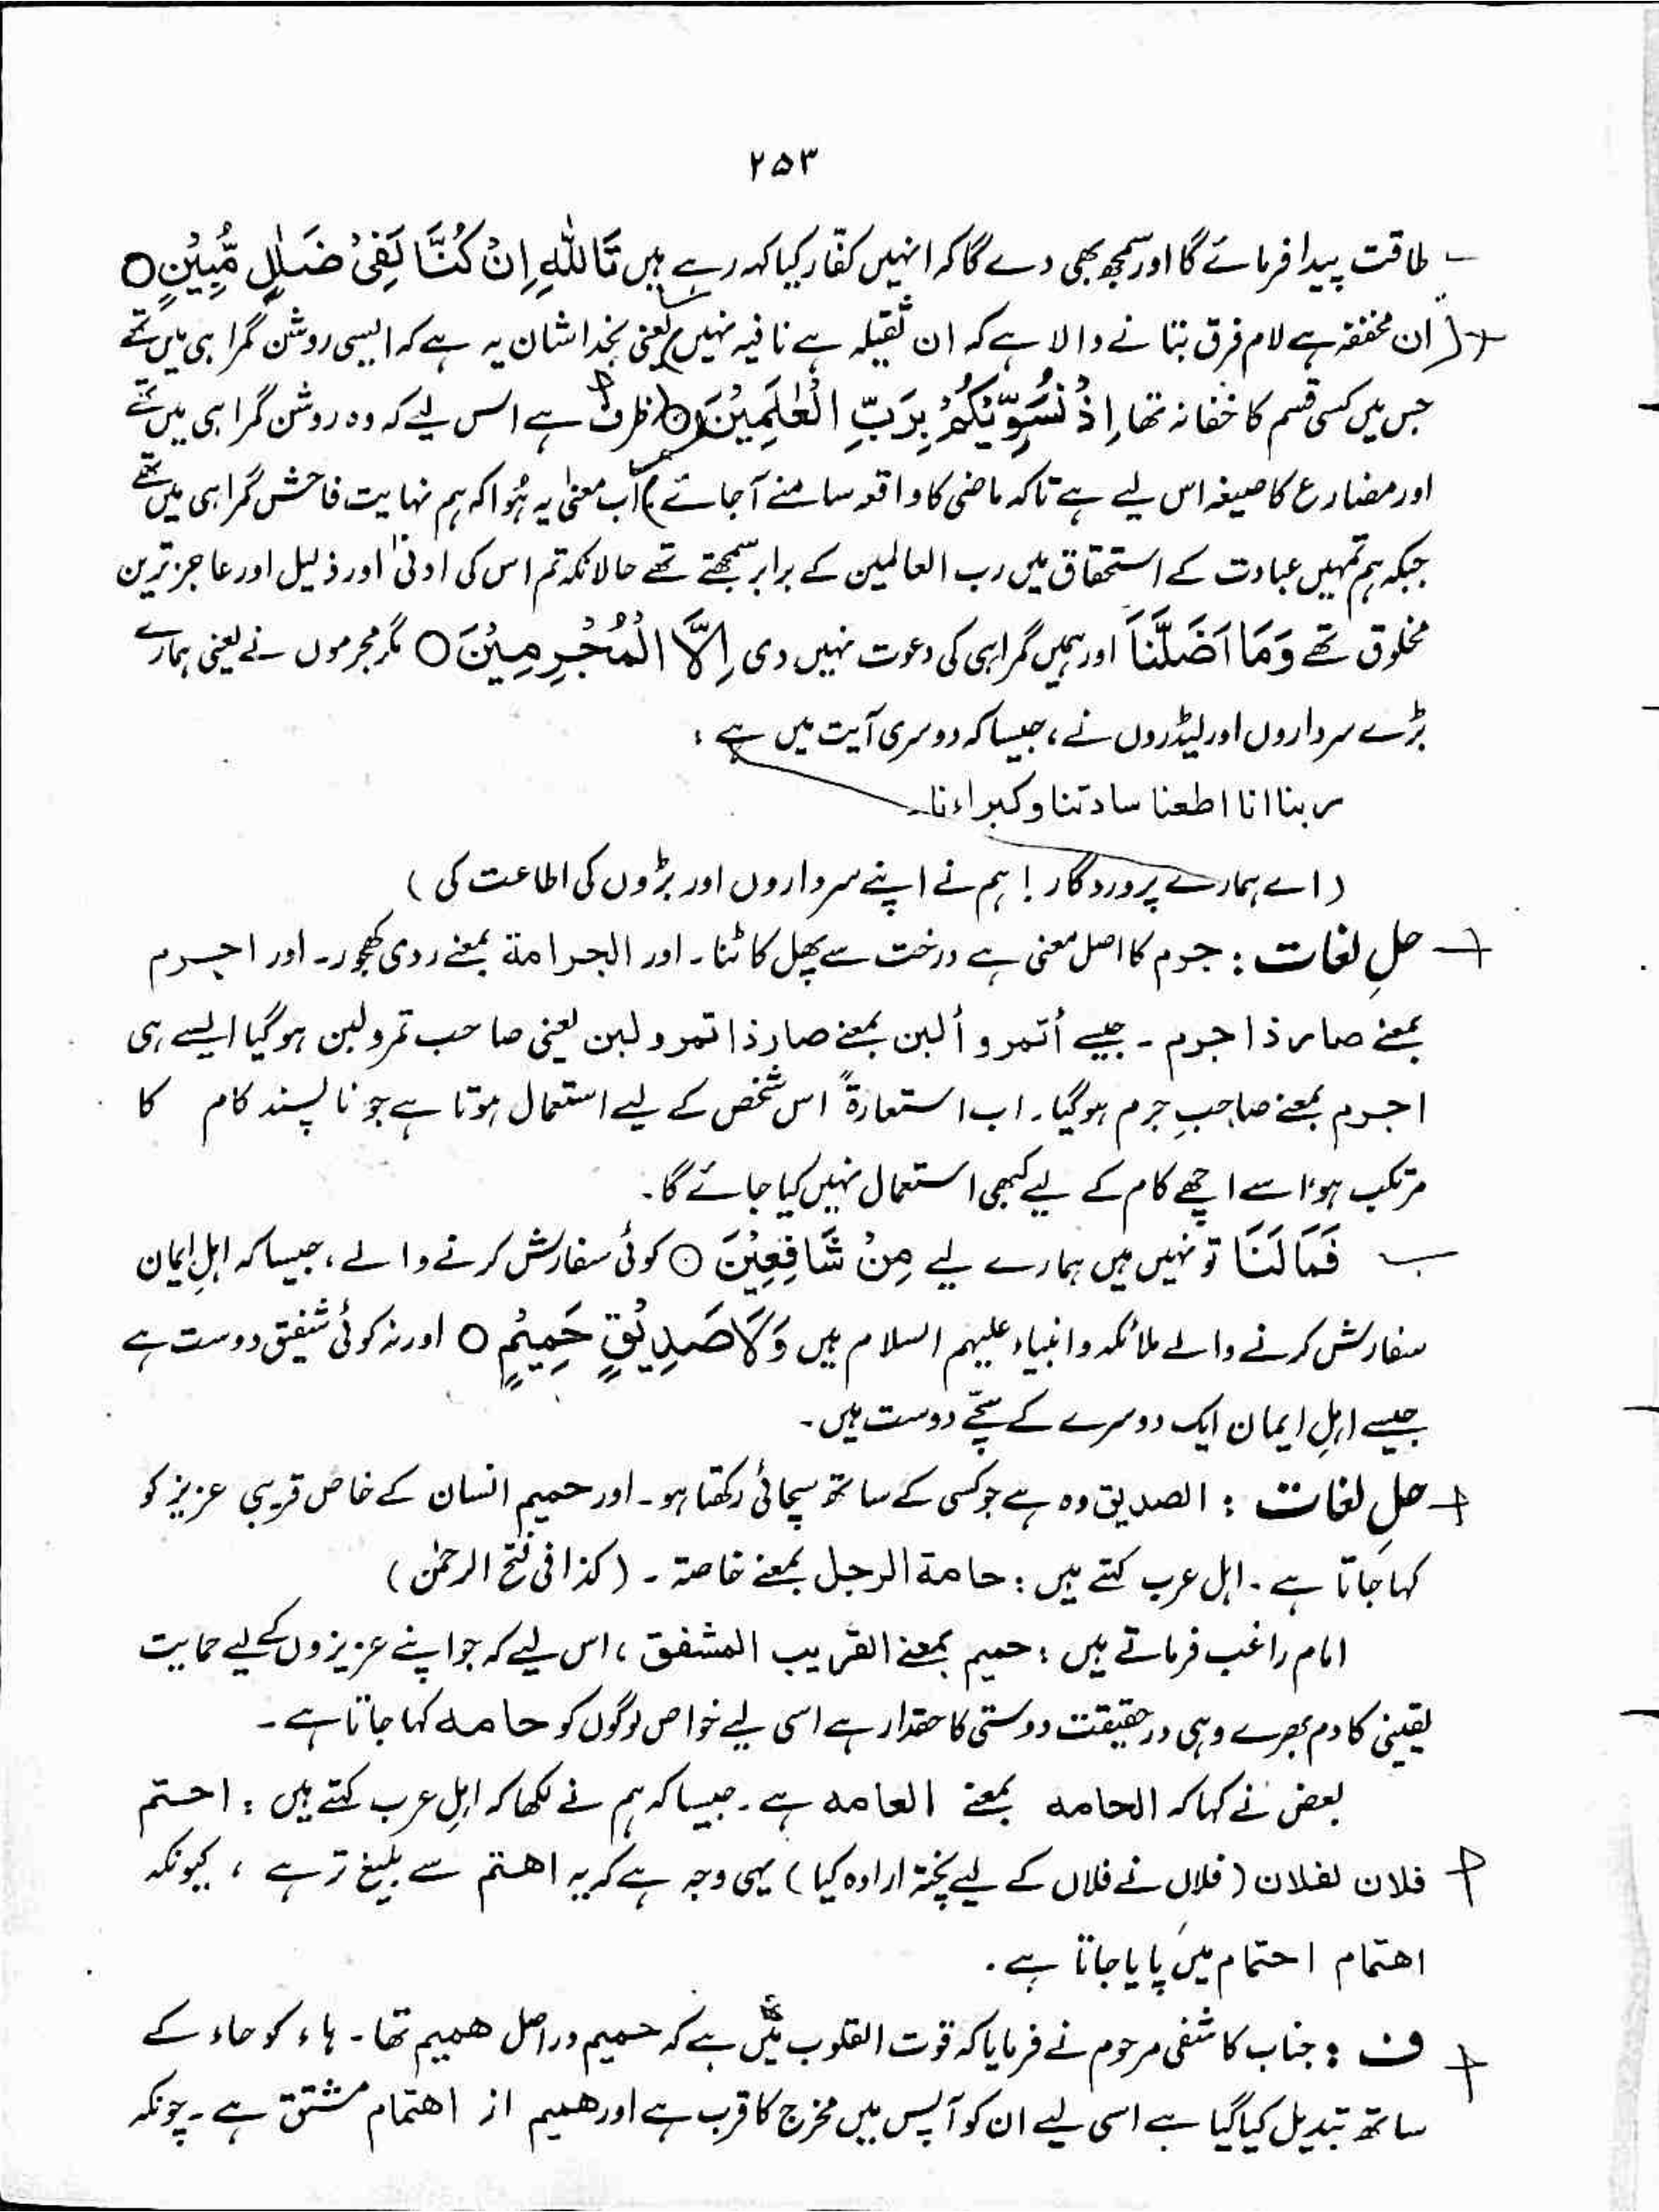 ۲۵۳
طاقت پیدا فرمائے گا اور سمجھ بھی دے گا کہ انہیں کفّار کیا کہہ رہے ہیں تَاللّٰهِ اِنْ كُنَّا لَفِیْ ضَلٰلٍ مُّبِیْنٍ ○
(ان مخففہ ہے لام فرق بتانے والا ہے کہ ان ثقیلہ ہے نافیہ نہیں) یعنی بخدا شان یہ ہے کہ ایسی روشن گمراہی میں تھے
جس میں کسی قسم کا خفا نہ تھا اِذْ نُسَوِّیْكُمْ بِرَبِّ الْعٰلَمِیْنَ ○ (ظرف ہے اس لیے کہ وہ روشن گمراہی میں تھے
اور مضارع کا صیغہ اس لیے ہے تاکہ ماضی کا واقعہ سامنے آجائے) اب معنیٰ یہ ہُوا کہ ہم نہایت فاحش گمراہی میں تھے
جبکہ ہم تمہیں عبادت کے استحقاق میں رب العالمین کے برابر سمجھتے تھے حالانکہ تم اس کی ادنیٰ اور ذلیل اور عاجز ترین
مخلوق تھے وَمَا اَضَلَّنَا اور ہمیں گمراہی کی دعوت نہیں دی اِلَّا الْمُجْرِمِیْنَ ○ مگر مجرموں نے یعنی ہمارے
بڑے سرداروں اور لیڈروں نے، جیسا کہ دوسری آیت میں ہے :
ربنا انا اطعنا سادتنا وكبراءنا۔
(اے ہمارے پروردگار! ہم نے اپنے سرداروں اور بڑوں کی اطاعت کی)
حلِ لغات : جرم کا اصل معنی ہے درخت سے پھل کاٹنا۔ اور الجرامة بمعنے ردی کھجور۔ اور اجرم
بمعنے صار ذا جرم ۔ جیسے أتمر و ألبن بمعنے صار ذا تمر و لبن یعنی صاحب تمر و لبن ہوگیا ایسے ہی
اجرم بمعنے صاحبِ جرم ہوگیا۔ اب استعارةً اس شخص کے لیے استعمال ہوتا ہے جو ناپسند کام کا
مرتکب ہو، اسے اچھے کام کے لیے کبھی استعمال نہیں کیا جائے گا۔
فَمَا لَنَا تو نہیں ہیں ہمارے لیے مِنْ شَافِعِیْنَ ○ کوئی سفارش کرنے والے، جیسا کہ اہلِ ایمان
سفارش کرنے والے ملائکہ و انبیاء علیہم السلام ہیں وَلَا صَدِیْقٍ حَمِیْمٍ ○ اور نہ کوئی شفیق دوست ہے
جیسے اہلِ ایمان ایک دوسرے کے سچّے دوست ہیں۔
حلِ لغات : الصدیق وہ ہے جو کسی کے ساتھ سچائی رکھتا ہو۔ اور حمیم انسان کے خاص قریبی عزیز کو
کہا جاتا ہے۔ اہل عرب کہتے ہیں : حامة الرجل بمعنے خاصتہ ۔ (کذا فی فتح الرحمٰن)
امام راغب فرماتے ہیں : حمیم بمعنے القریب المشفق، اس لیے کہ جو اپنے عزیزوں کے لیے حمایت
یقینی کا دم بھرے وہی درحقیقت دوستی کا حقدار ہے اسی لیے خواص لوگوں کو حامہ کہا جاتا ہے۔
بعض نے کہا کہ الحامہ بمعنے العامہ ہے۔ جیسا کہ ہم نے لکھا کہ اہلِ عرب کہتے ہیں : احتم
فلان لفلان (فلاں نے فلاں کے لیے پختہ ارادہ کیا) یہی وجہ ہے کہ یہ اھتم سے بلیغ تر ہے ، کیونکہ
اھتمام احتمام میں پایا جاتا ہے۔
ف : جناب کاشفی مرحوم نے فرمایا کہ قوت القلوب میں ہے کہ حمیم دراصل ھمیم تھا۔ ہاء کو حاء کے
ساتھ تبدیل کیا گیا ہے اسی لیے ان کو آپس میں مخرج کا قرب ہے اور ھمیم از اھتمام مشتق ہے۔ چونکہ